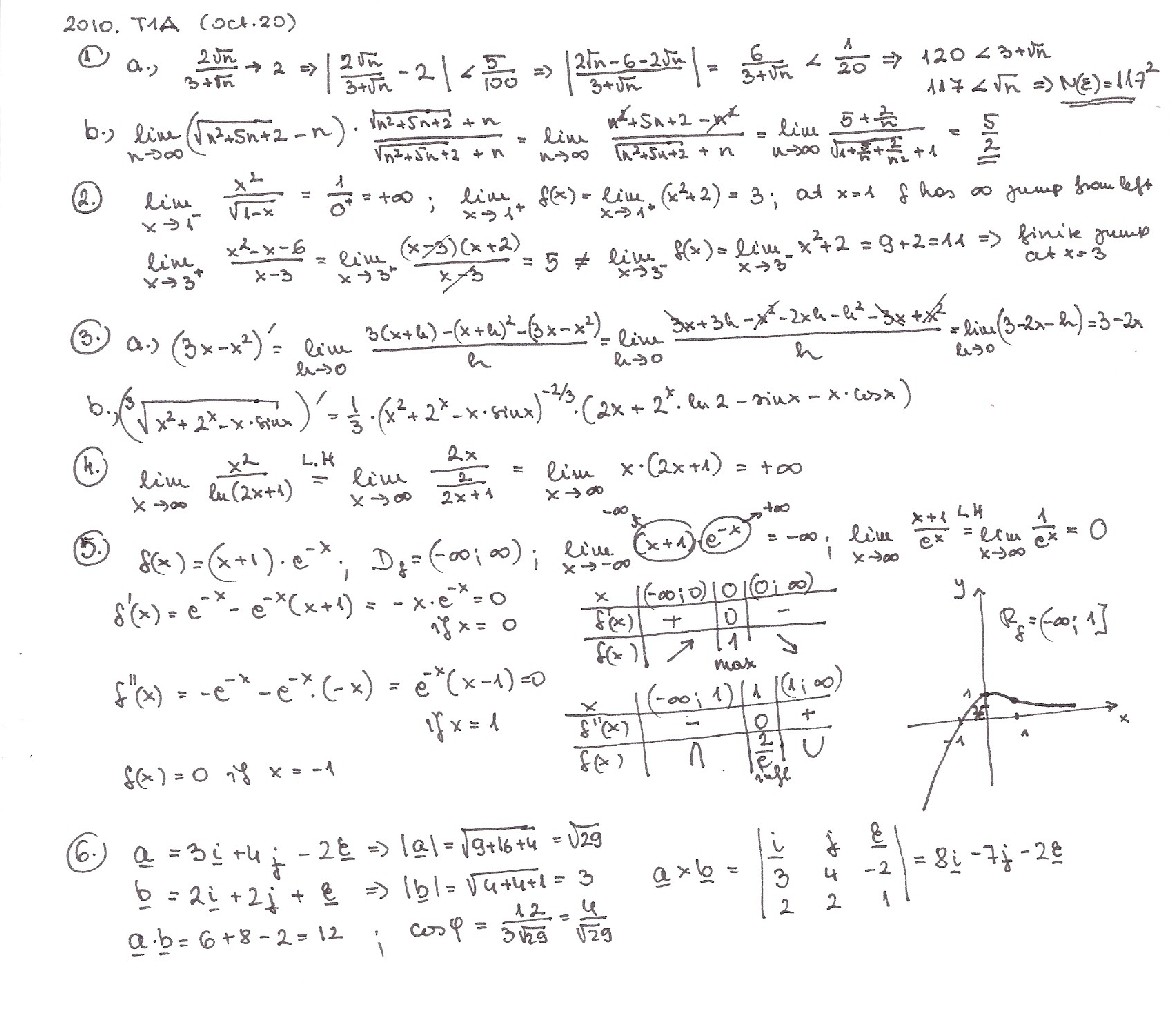 2010. T1A (Oct. 20)
① a., 2√n/(3+√n) → 2 ⇒ |2√n/(3+√n) - 2| < 5/100 ⇒ |(2√n-6-2√n)/(3+√n)| = 6/(3+√n) < 1/20 ⇒ 120 < 3+√n
117 < √n ⇒ N(ε)=117²
b., lim n→∞ (√(n²+5n+2) - n) · (√(n²+5n+2) + n)/(√(n²+5n+2) + n) = lim n→∞ (n²+5n+2-n²)/(√(n²+5n+2) + n) = lim n→∞ (5+2/n)/(√(1+5/n+2/n²)+1) = 5/2
②. lim x→1⁻ x²/√(1-x) = 1/0⁺ = +∞ ; lim x→1⁺ f(x) = lim x→1⁺ (x²+2) = 3; at x=1 f has ∞ jump from left
lim x→3⁺ (x²-x-6)/(x-3) = lim x→3⁺ (x-3)(x+2)/(x-3) = 5 ≠ lim x→3⁻ f(x) = lim x→3⁻ x²+2 = 9+2=11 ⇒ finite jump at x=3
③. a., (3x-x²)' = lim h→0 (3(x+h)-(x+h)²-(3x-x²))/h = lim h→0 (3x+3h-x²-2xh-h²-3x+x²)/h = lim h→0 (3-2x-h) = 3-2x
b., (∛(x²+2ˣ-x·sinx))' = 1/3·(x²+2ˣ-x·sinx)^(-2/3)·(2x+2ˣ·ln2-sinx-x·cosx)
④. lim x→∞ x²/ln(2x+1) L.H = lim x→∞ 2x/(2/(2x+1)) = lim x→∞ x·(2x+1) = +∞
⑤. f(x)=(x+1)·e⁻ˣ; D_f=(-∞;∞); lim x→-∞ (x+1)·e⁻ˣ = -∞; lim x→∞ (x+1)/eˣ LH = lim x→∞ 1/eˣ = 0
-∞ +∞
f'(x) = e⁻ˣ - e⁻ˣ(x+1) = -x·e⁻ˣ = 0
if x = 0
x | (-∞;0) | 0 | (0;∞)
f'(x) | + | 0 | -
f(x) | ↗ | 1 | ↘
max
f''(x) = -e⁻ˣ - e⁻ˣ·(-x) = e⁻ˣ(x-1)=0
if x = 1
x | (-∞;1) | 1 | (1;∞)
f''(x) | - | 0 | +
f(x) | ∩ | 2/e | ∪
infl
f(x)=0 if x = -1
y
R_f=(-∞;1]
1
-1 1 x
⑥. a = 3i+4j-2k ⇒ |a| = √(9+16+4) = √29
b = 2i+2j+k ⇒ |b| = √(4+4+1) = 3
a·b = 6+8-2 = 12 ; cosφ = 12/(3√29) = 4/√29
a×b = | i j k | = 8i-7j-2k
| 3 4 -2 |
| 2 2 1 |